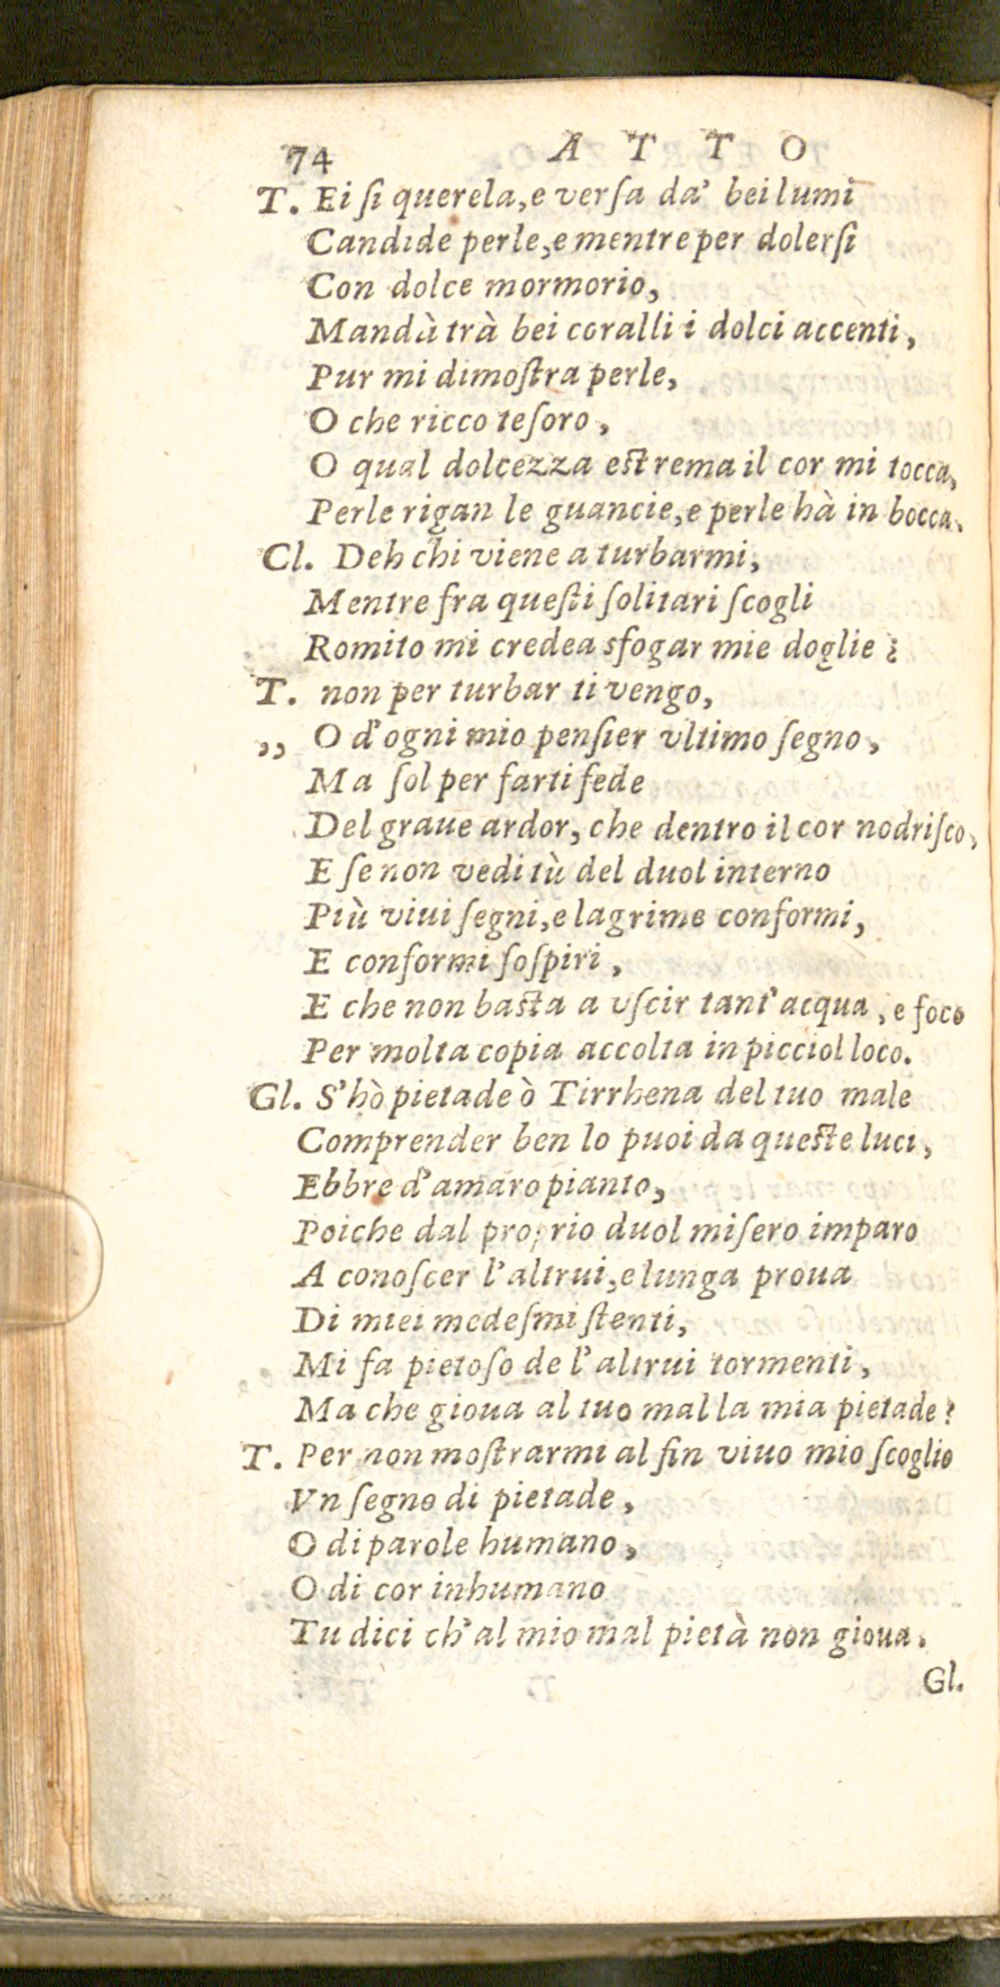 74 A T T O
T. Ei ſi querela, e verſa da' bei lumi
Candide perle, e mentre per dolerſi
Con dolce mormorio,
Mandà trà bei coralli i dolci accenti,
Pur mi dimoſtra perle,
O che ricco teſoro,
O qual dolcezza eſtrema il cor mi tocca,
Perle rigan le guancie, e perle hà in bocca.
Cl. Deh chi viene a turbarmi,
Mentre fra queſti ſolitari ſcogli
Romito mi credea sfogar mie doglie?
T. non per turbar ti vengo,
„ O d'ogni mio penſier vltimo ſegno,
Ma ſol per farti fede
Del graue ardor, che dentro il cor nodriſco,
E ſe non vedi tù del duol interno
Più viui ſegni, e lagrime conformi,
E conformi ſoſpiri,
E che non baſta a vſcir tant'acqua, e foco
Per molta copia accolta in picciol loco.
Gl. S'hò pietade ò Tirrhena del tuo male
Comprender ben lo puoi da queſte luci,
Ebbre d'amaro pianto,
Poiche dal proprio duol miſero imparo
A conoſcer l'altrui, e lunga proua
Di miei medeſmi ſtenti,
Mi fa pietoſo de l'altrui tormenti,
Ma che gioua al tuo mal la mia pietade?
T. Per non moſtrarmi al fin viuo mio ſcoglio
Vn ſegno di pietade,
O di parole humano,
O di cor inhumano
Tu dici ch'al mio mal pietà non gioua.
Gl.